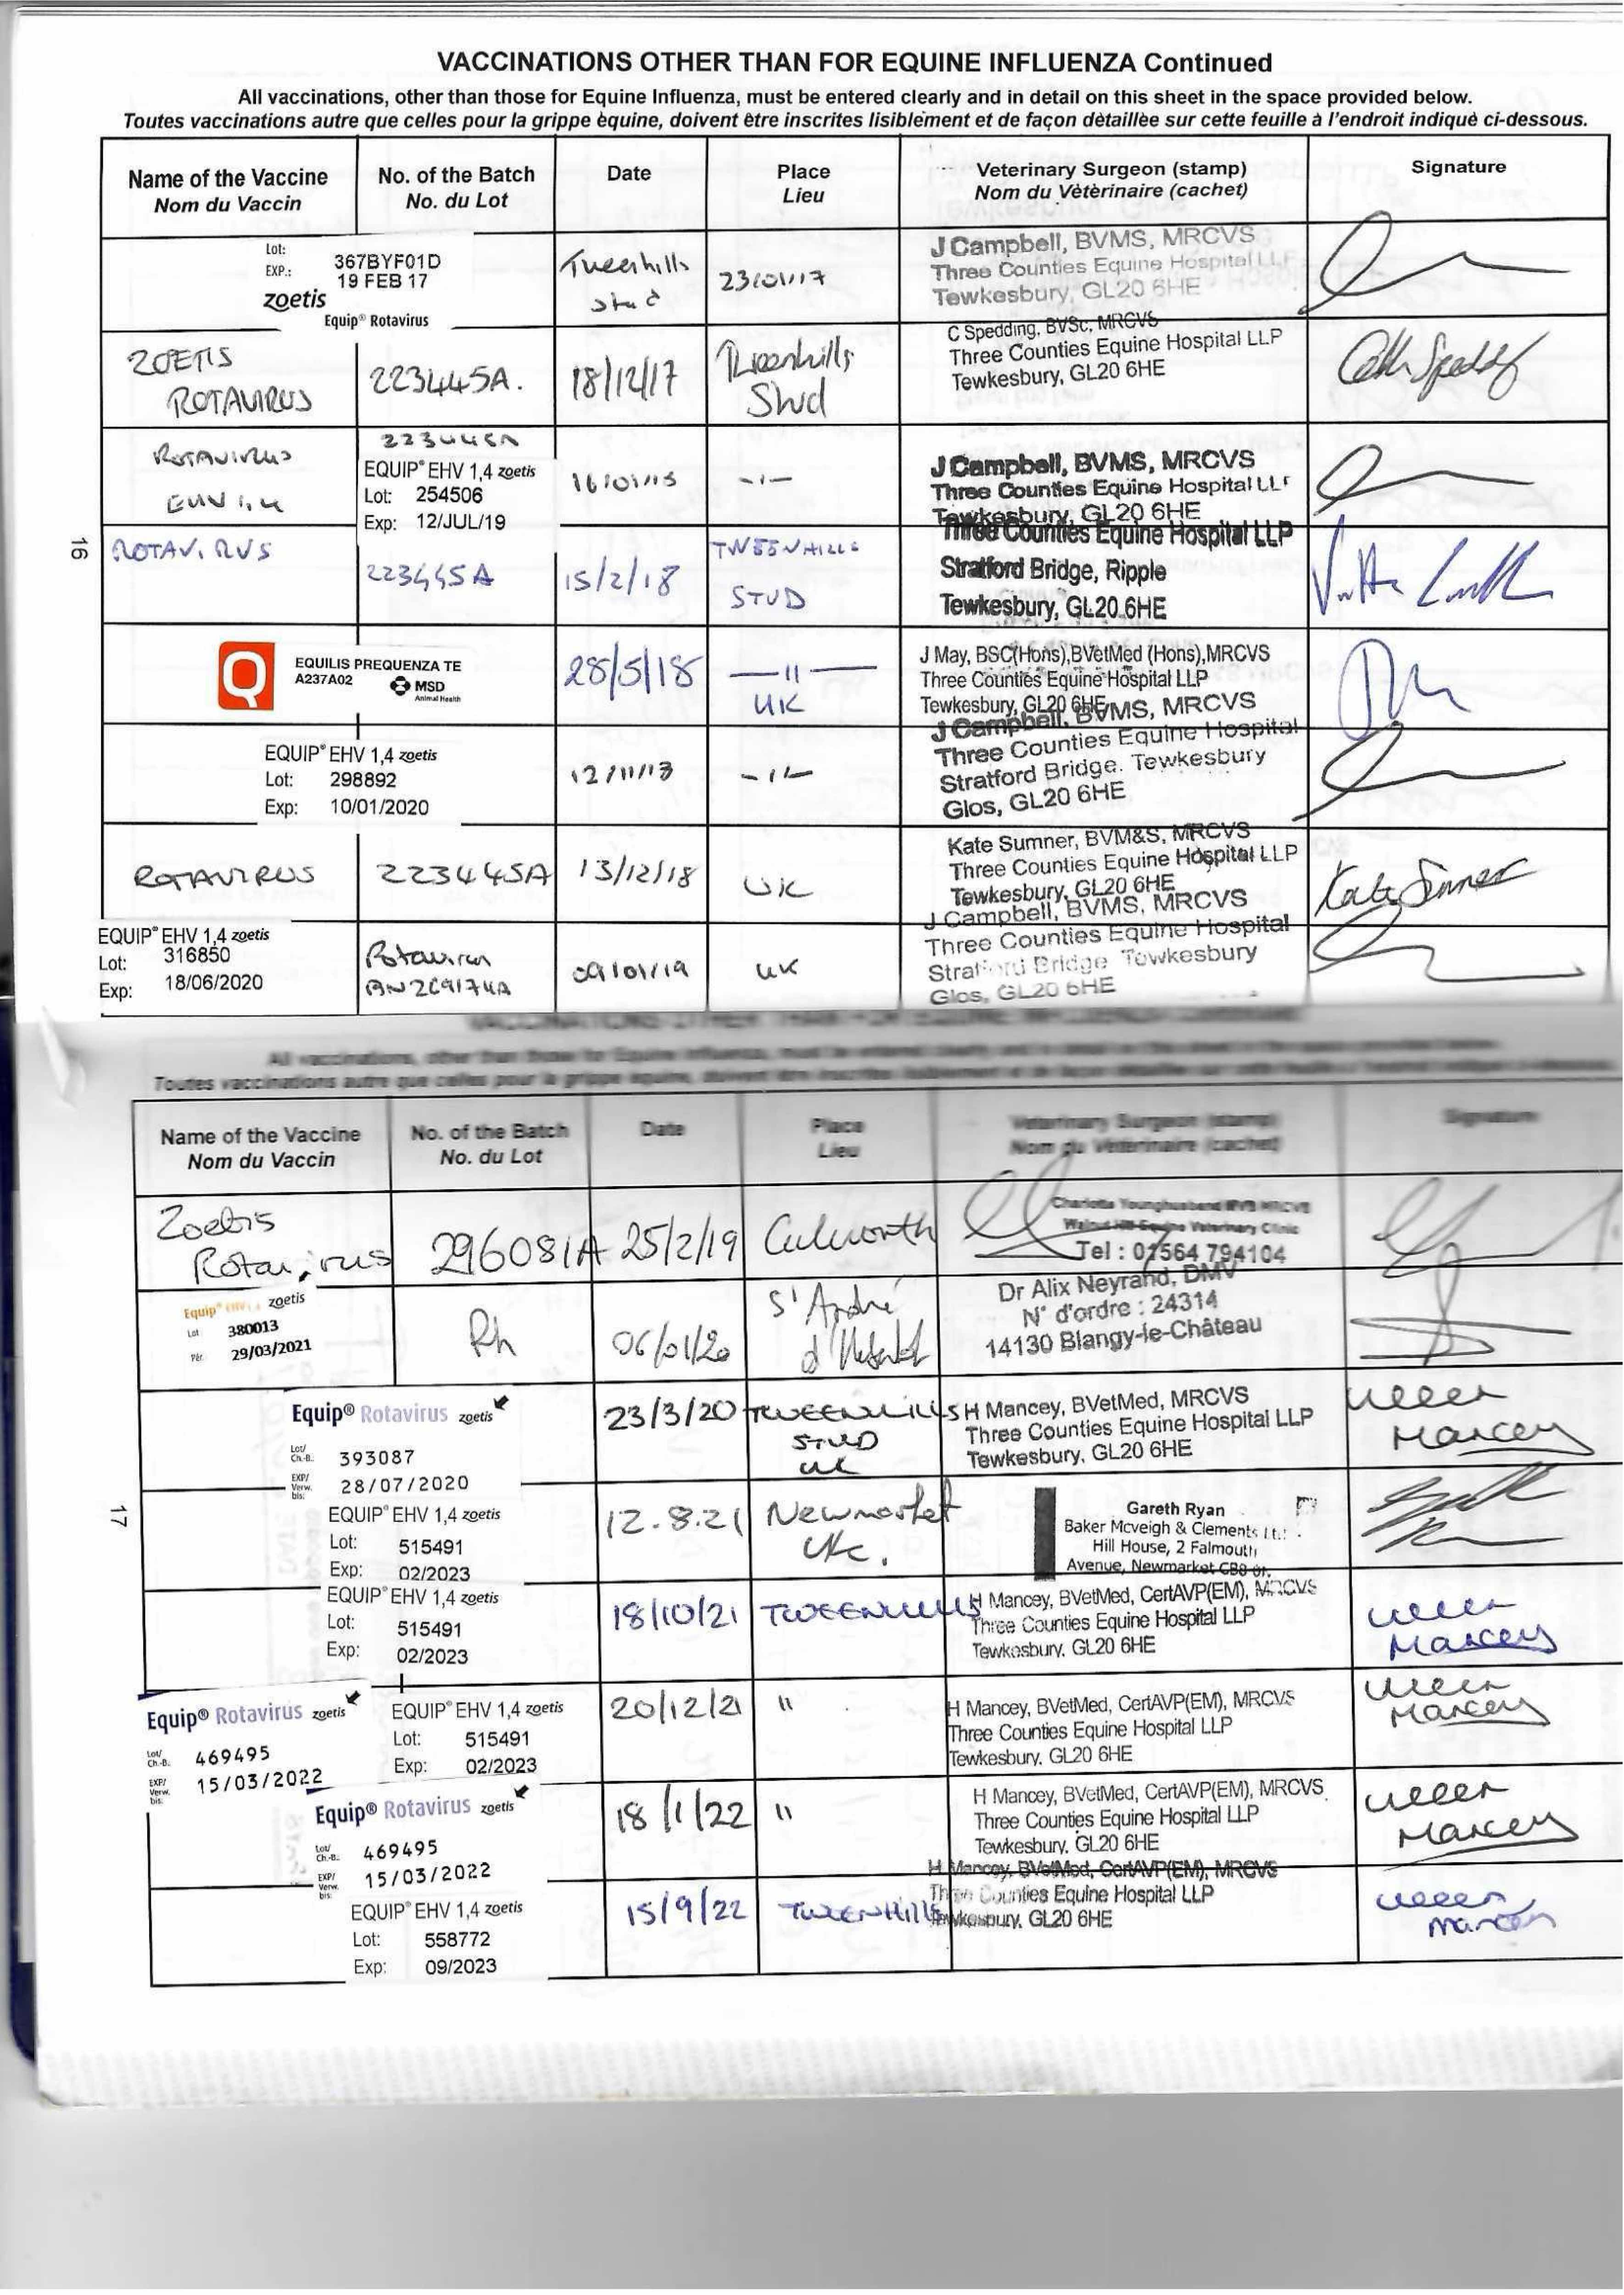 VACCINATIONS OTHER THAN FOR EQUINE INFLUENZA Continued
All vaccinations, other than those for Equine Influenza, must be entered clearly and in detail on this sheet in the space provided below.
Toutes vaccinations autre que celles pour la grippe èquine, doivent ètre inscrites lisiblement et de façon dètaillèe sur cette feuille à l'endroit indiquè ci-dessous.
Name of the Vaccine
Nom du Vaccin
No. of the Batch
No. du Lot
Date
Place
Lieu
Veterinary Surgeon (stamp)
Nom du Vètèrinaire (cachet)
Signature
Lot: 367BYF01D
EXP.: 19 FEB 17
zoetis
Equip® Rotavirus
Tweenhills
Stud
23/01/17
J Campbell, BVMS, MRCVS
Three Counties Equine Hospital LLP
Tewkesbury, GL20 6HE
ZOETIS
ROTAVIRUS
223445A.
18/12/17
Tweenhills
Stud
C Spedding, BVSc, MRCVS
Three Counties Equine Hospital LLP
Tewkesbury, GL20 6HE
ROTAVIRUS
EHV 1,4
223445A
EQUIP® EHV 1,4 zoetis
Lot: 254506
Exp: 12/JUL/19
J Campbell, BVMS, MRCVS
Three Counties Equine Hospital LLP
Tewkesbury, GL20 6HE
16
ROTAVIRUS
223445A
15/2/18
TWEENHILLS
STUD
Three Counties Equine Hospital LLP
Stratford Bridge, Ripple
Tewkesbury, GL20 6HE
Q
EQUILIS PREQUENZA TE
A237A02
MSD
Animal Health
28/5/18
— 11 —
UK
J May, BSC(Hons),BVetMed (Hons),MRCVS
Three Counties Equine Hospital LLP
Tewkesbury, GL20 6HE
EQUIP® EHV 1,4 zoetis
Lot: 298892
Exp: 10/01/2020
J Campbell, BVMS, MRCVS
Three Counties Equine Hospital
Stratford Bridge. Tewkesbury
Glos, GL20 6HE
ROTAVIRUS
223445A
13/12/18
UK
Kate Sumner, BVM&S, MRCVS
Three Counties Equine Hospital LLP
Tewkesbury, GL20 6HE
Kate Sumner
EQUIP® EHV 1,4 zoetis
Lot: 316850
Exp: 18/06/2020
Rotavirus
09/01/19
UK
J Campbell, BVMS, MRCVS
Three Counties Equine Hospital
Stratford Bridge Tewkesbury
Glos, GL20 6HE
All vaccinations, other than those for Equine Influenza, must be entered clearly and in detail on this sheet in the space provided below.
Toutes vaccinations autre que celles pour la grippe èquine, doivent ètre inscrites
Name of the Vaccine
Nom du Vaccin
No. of the Batch
No. du Lot
Date
Place
Lieu
Veterinary Surgeon (stamp)
Nom du Vètèrinaire (cachet)
Signature
Zoetis
Rotavirus
296081A
25/2/19
Culworth
Charlotte Younghusband MVB MRCVS
Walnut Hill Equine Veterinary Clinic
Tel : 07564 794104
Equip® EHV 1,4 zoetis
Lot 380013
Pér. 29/03/2021
Rh
06/01/20
St André
Dr Alix Neyrand, DMV
N° d'ordre : 24314
14130 Blangy-le-Château
Equip® Rotavirus zoetis
Lot/ Ch.-B. 393087
EXP/ Verw. bis: 28/07/2020
23/3/20
TWEENHILLS
STUD
UK
H Mancey, BVetMed, MRCVS
Three Counties Equine Hospital LLP
Tewkesbury, GL20 6HE
Mancey
17
EQUIP® EHV 1,4 zoetis
Lot: 515491
Exp: 02/2023
12.8.21
Newmarket
UK.
Gareth Ryan
Baker Mcveigh & Clements Lt.:
Hill House, 2 Falmouth
Avenue, Newmarket CB8
EQUIP® EHV 1,4 zoetis
Lot: 515491
Exp: 02/2023
18/10/21
TWEENHILLS
H Mancey, BVetMed, CertAVP(EM), MRCVS
Three Counties Equine Hospital LLP
Tewkesbury, GL20 6HE
Mancey
Equip® Rotavirus zoetis
Lot/ Ch.-B. 469495
EXP/ Verw. bis: 15/03/2022
EQUIP® EHV 1,4 zoetis
Lot: 515491
Exp: 02/2023
20/12/21
"
H Mancey, BVetMed, CertAVP(EM), MRCVS
Three Counties Equine Hospital LLP
Tewkesbury. GL20 6HE
Mancey
Equip® Rotavirus zoetis
Lot/ Ch.-B. 469495
EXP/ Verw. bis: 15/03/2022
18/1/22
"
H Mancey, BVetMed, CertAVP(EM), MRCVS
Three Counties Equine Hospital LLP
Tewkesbury. GL20 6HE
Mancey
EQUIP® EHV 1,4 zoetis
Lot: 558772
Exp: 09/2023
15/9/22
TWEENHILLS
H Mancey, BVetMed, CertAVP(EM), MRCVS
Three Counties Equine Hospital LLP
Tewkesbury, GL20 6HE
Mancey